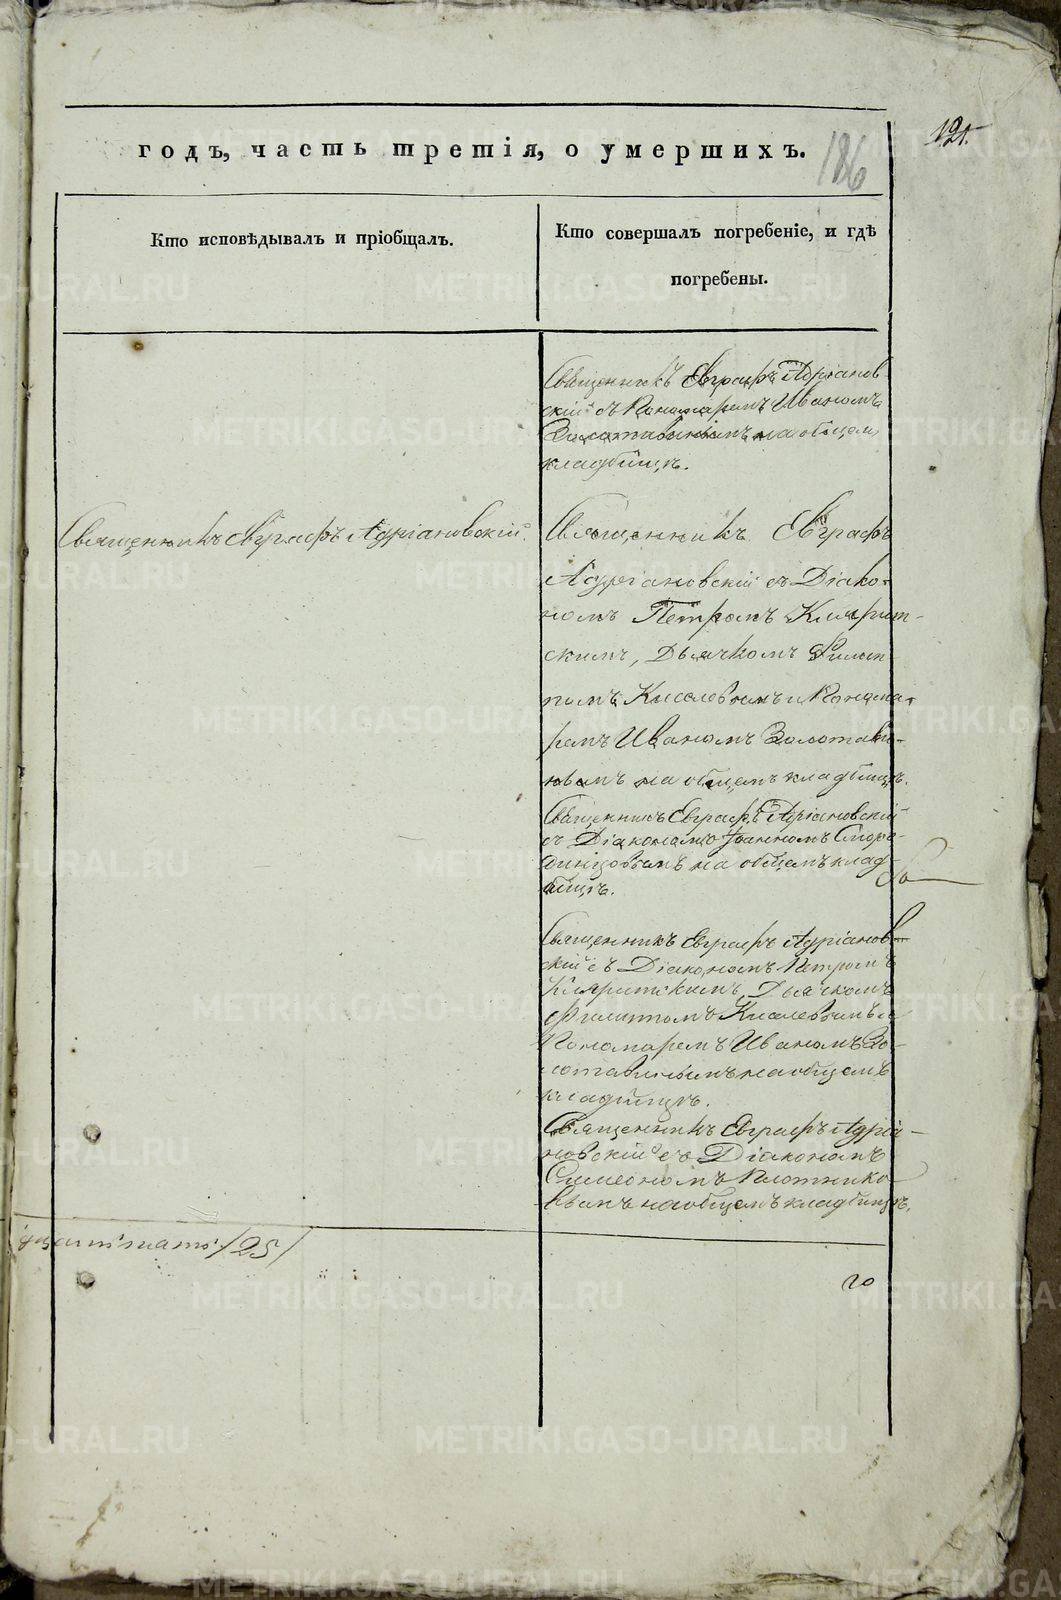 годъ, часть третія, о умершихъ.
186
121.
Кто исповѣдывалъ и пріобщалъ.
Кто совершалъ погребеніе, и гдѣ
погребены.
Священникъ Евграфъ Адріановскій.
Священникъ Евграфъ Адріанов-
скій съ Пономаремъ Иваномъ
Золотавинымъ на общемъ
кладбищѣ.
Священникъ Евграфъ
Адріановскій съ Діако-
номъ Петромъ
скимъ, Дьячкомъ Филип-
помъ Киселевымъ и Понома-
ремъ Иваномъ Золотави-
нымъ на общемъ кладбищѣ.
Священникъ Евграфъ Адріановскій
съ Діакономъ Іоанномъ
на общемъ клад-
бищѣ.
Священникъ Евграфъ Адріанов-
скій съ Діакономъ Петромъ
Дьячкомъ
Филиппомъ Киселевымъ и
Пономаремъ Иваномъ Зо-
лотавинымъ на общемъ
кладбищѣ.
Священникъ Евграфъ Адріа-
новскій съ Діакономъ
Симеономъ Плотнико-
вымъ на общемъ кладбищѣ.
/25/
20
METRIKI.GASO-URAL.RU